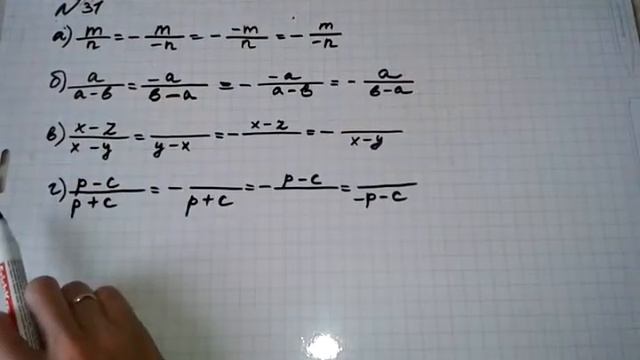 N 31
а) m/n = - m/-n = - -m/n = - m/-n
б) a/a-в = -a/в-a = - -a/a-в = - a/в-a
в) x-z/x-y = /y-x = - x-z/ = - /x-y
г) p-c/p+c = - /p+c = - p-c/ = /-p-c